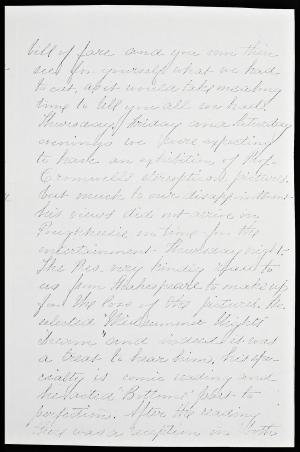 bill of fare and you can then
see for yourself what we had
to eat, as it would take me a long
time to tell you all we had.
Thursday, Friday and Saturday
evenings we were expecting
to have an exhibition of Prof.
Cromwell's stereopticon pictures.
but much to our disappointment
his views did not arrive in
Poughkeepsie in time for the
entertainment. Thursday night.
The Pres. very kindly read to
us from Shakespeare to make up
for the loss of the pictures. He
selected "Midsummer Nights
Dream" and indeed it was
a treat to hear him, his spe-
cialty is comic reading and
he acted "Bottom's" part to
perfection. After the reading
there was a reception in "both